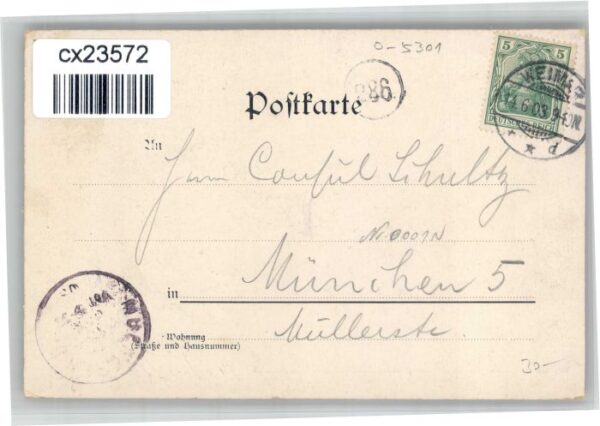 cx23572
0-5301
5
DEUTSCHES REICH
WEIMAR
14.6.03. 8-9N.
* * d
286
Postkarte
An
Herrn Consul Schultz
in München 5
Müllerstr.
Wohnung
(Straße und Hausnummer)
30-